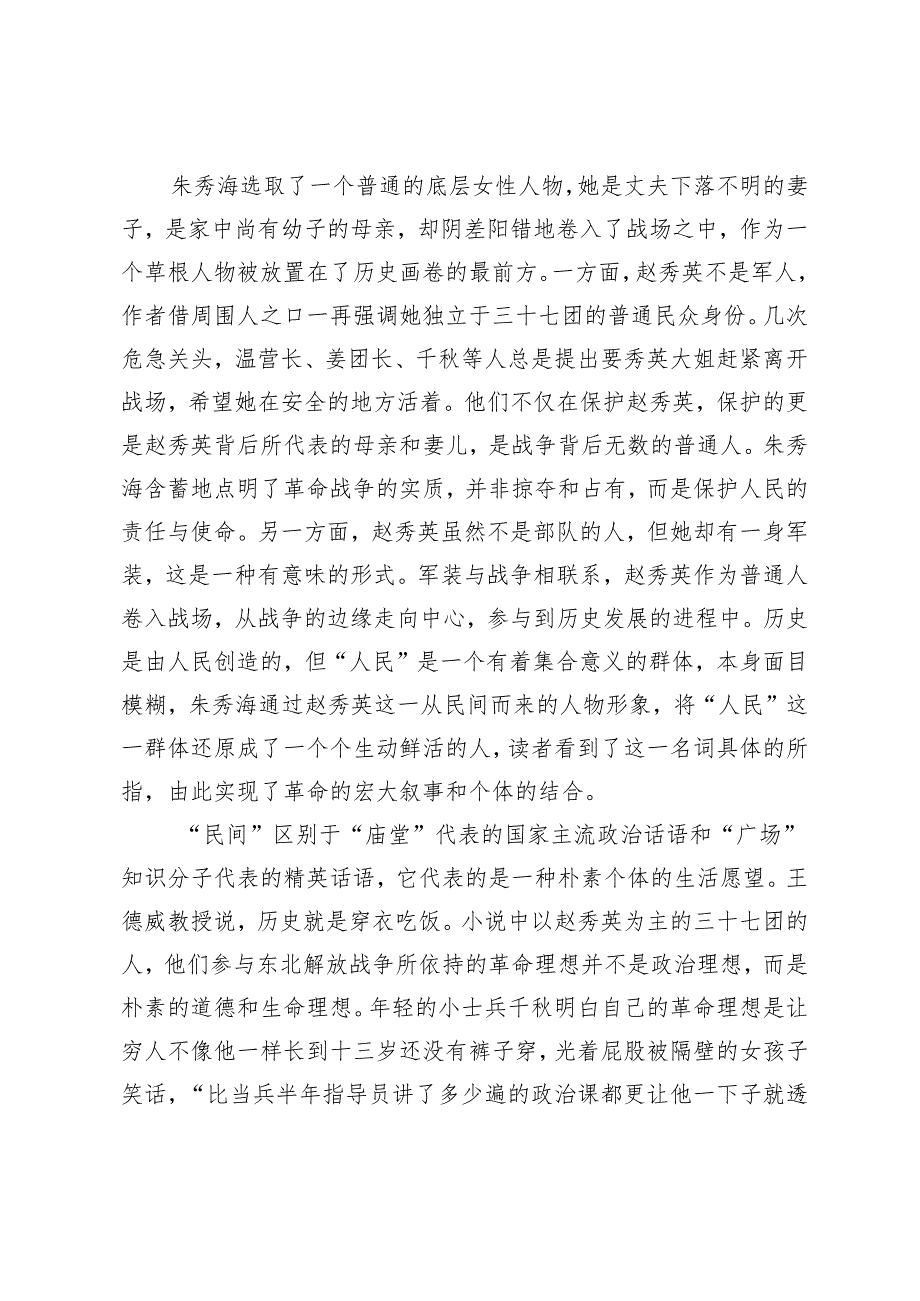 朱秀海选取了一个普通的底层女性人物，她是丈夫下落不明的妻
子，是家中尚有幼子的母亲，却阴差阳错地卷入了战场之中，作为一
个草根人物被放置在了历史画卷的最前方。一方面，赵秀英不是军人，
作者借周围人之口一再强调她独立于三十七团的普通民众身份。几次
危急关头，温营长、姜团长、千秋等人总是提出要秀英大姐赶紧离开
战场，希望她在安全的地方活着。他们不仅在保护赵秀英，保护的更
是赵秀英背后所代表的母亲和妻儿，是战争背后无数的普通人。朱秀
海含蓄地点明了革命战争的实质，并非掠夺和占有，而是保护人民的
责任与使命。另一方面，赵秀英虽然不是部队的人，但她却有一身军
装，这是一种有意味的形式。军装与战争相联系，赵秀英作为普通人
卷入战场，从战争的边缘走向中心，参与到历史发展的进程中。历史
是由人民创造的，但“人民”是一个有着集合意义的群体，本身面目
模糊，朱秀海通过赵秀英这一从民间而来的人物形象，将“人民”这
一群体还原成了一个个生动鲜活的人，读者看到了这一名词具体的所
指，由此实现了革命的宏大叙事和个体的结合。
“民间”区别于“庙堂”代表的国家主流政治话语和“广场”
知识分子代表的精英话语，它代表的是一种朴素个体的生活愿望。王
德威教授说，历史就是穿衣吃饭。小说中以赵秀英为主的三十七团的
人，他们参与东北解放战争所依持的革命理想并不是政治理想，而是
朴素的道德和生命理想。年轻的小士兵千秋明白自己的革命理想是让
穷人不像他一样长到十三岁还没有裤子穿，光着屁股被隔壁的女孩子
笑话，“比当兵半年指导员讲了多少遍的政治课都更让他一下子就透